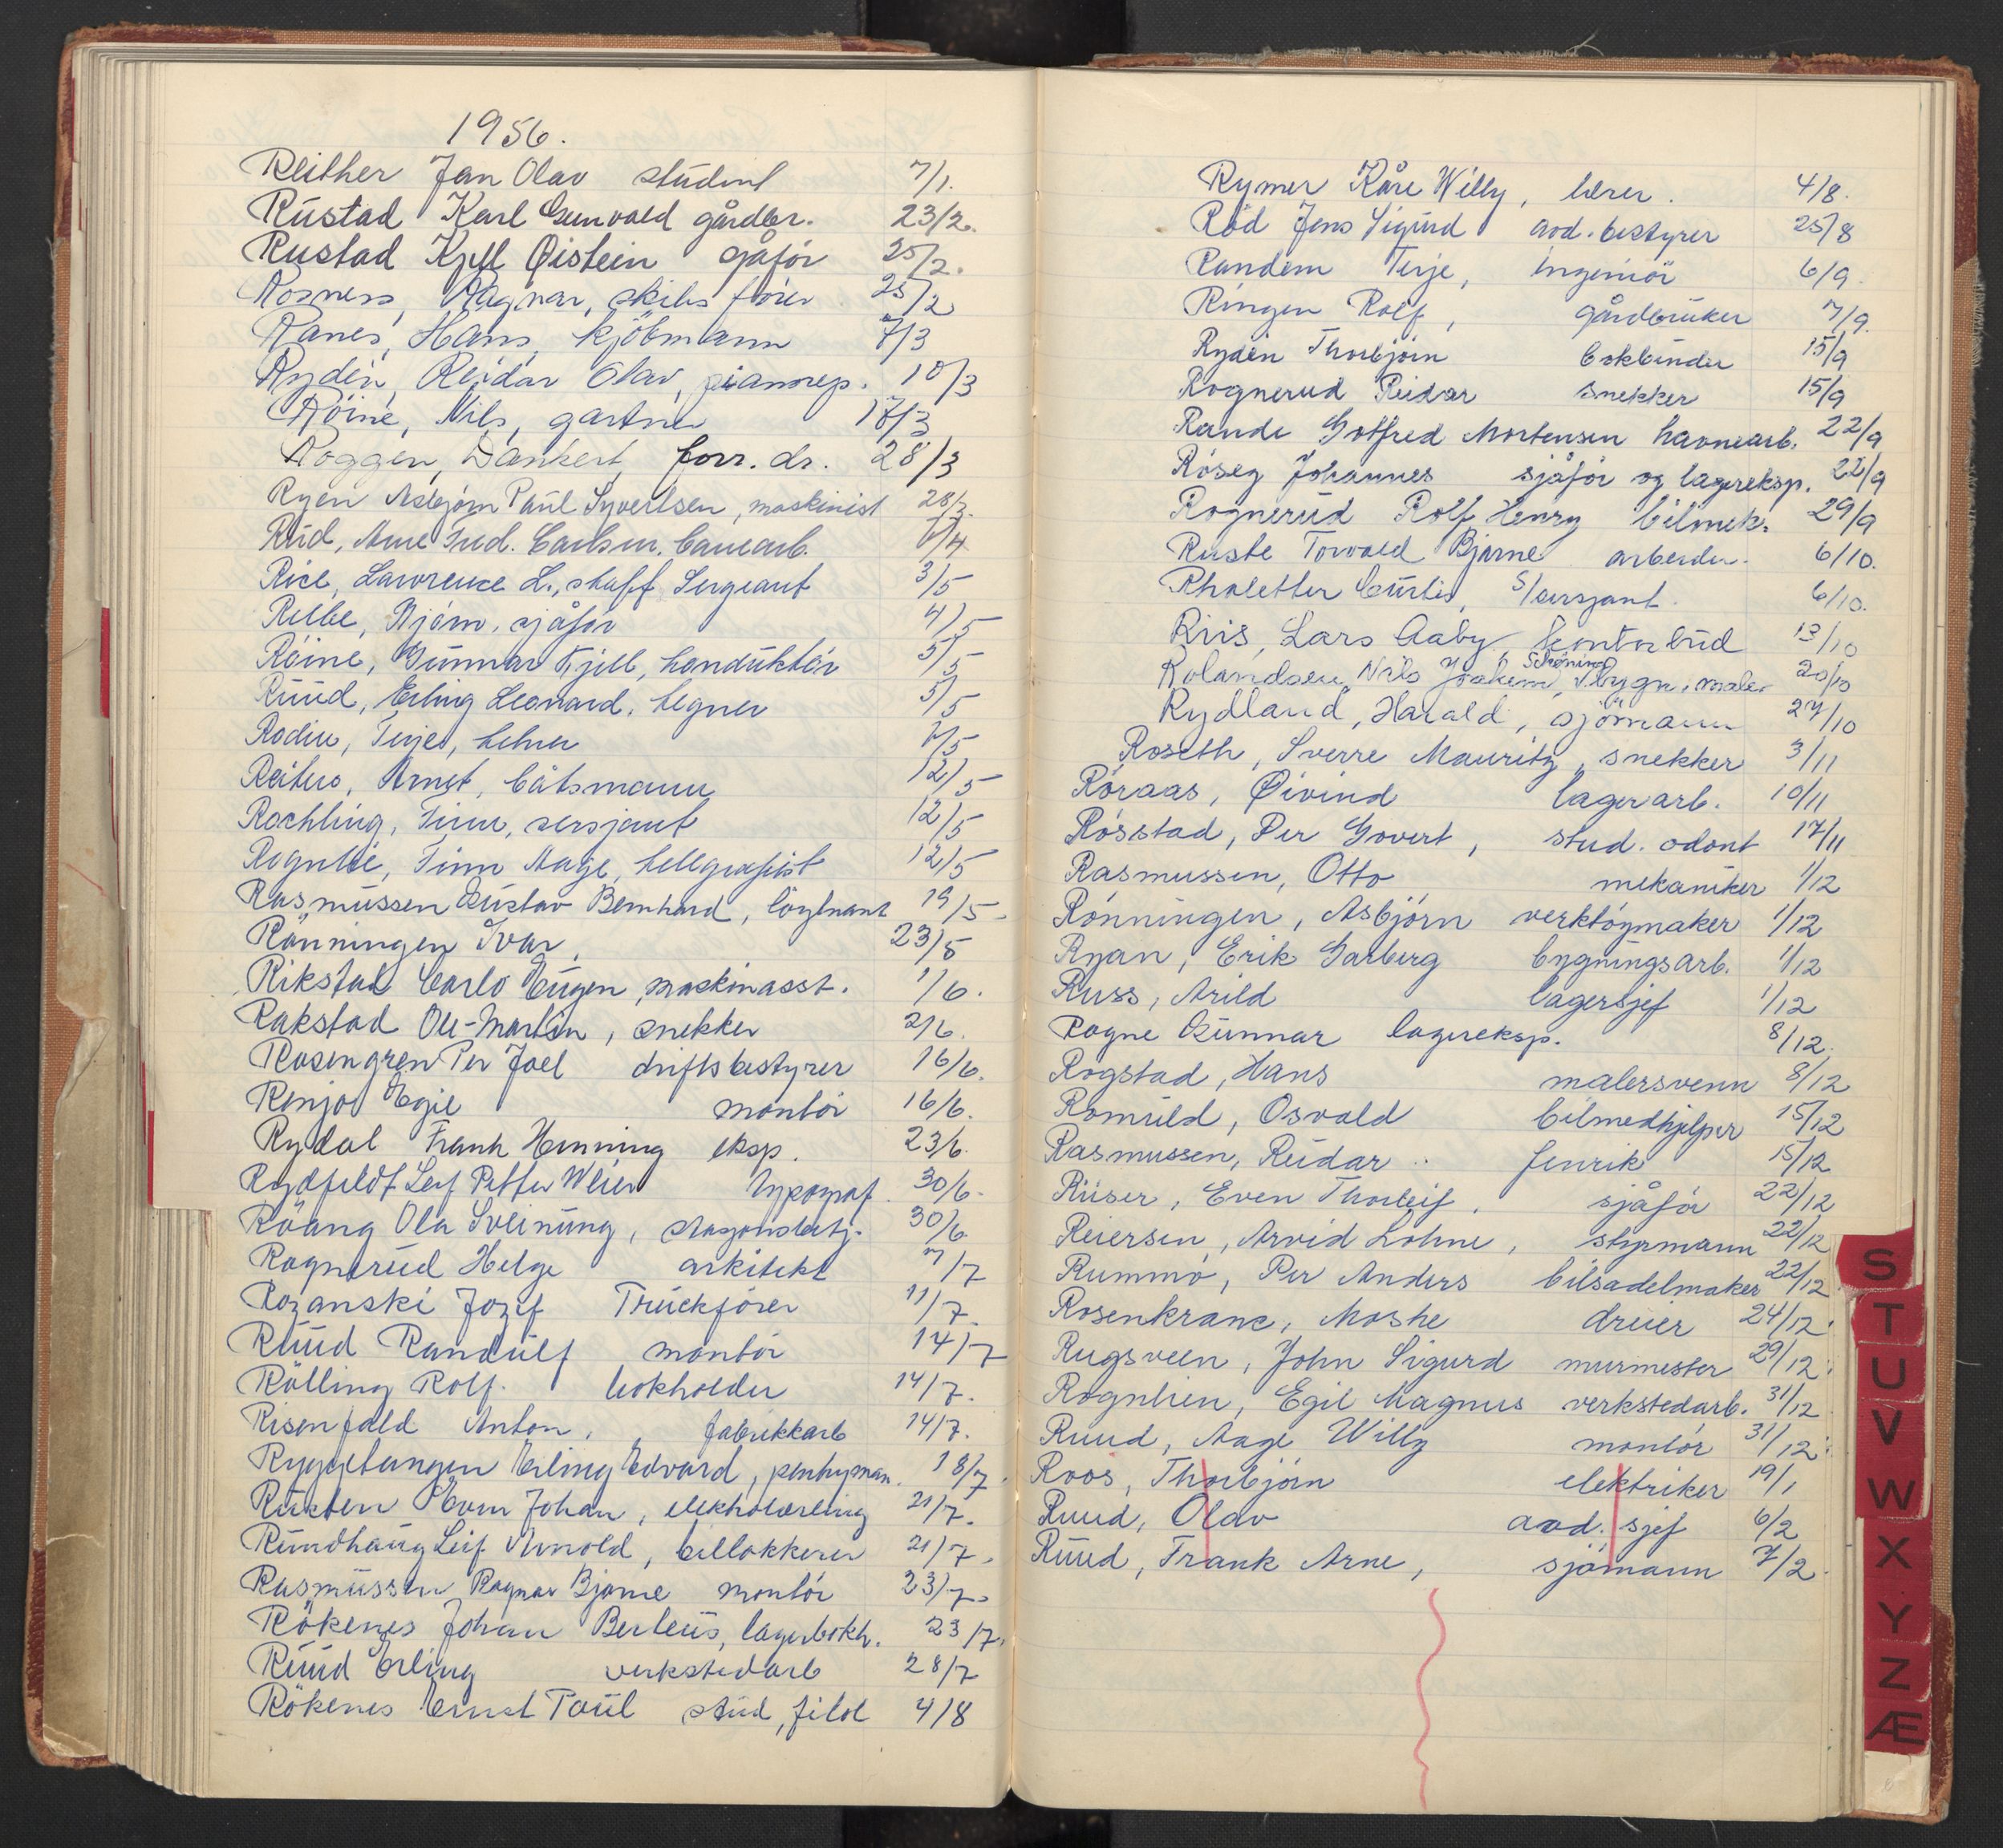 1956.
Reither Jan Olav student 7/1.
Rustad Karl Gunvald gårdbr. 23/2.
Rustad Kjell Øistein sjåfør 25/2.
Rosness, Ragnar, skibsfører 25/2
Ranes, Hans, kjöbmann 7/3
Rydén, Reidar Olav, pianorep. 10/3
Röine, Nils, gartner 17/3
Roggen, Dankert forr. dr. 28/3
Ryen Asbjørn Paul Syvertsen, maskinist 28/3.
Rud, Arne Fred. Carlsen. 4/4
Rice, Lawrence L., staff Sergeant 3/5
Bjørn, sjåför 4/5
Röine, Gunnar Kjell, konduktör 5/5
Ruud, Erling Leonard, tegner 5/5
Rodin, Terje, 5/5
Ernst, båtsmann 12/5
Rochling, Finn, sersjant 12/5
Rognlie, Finn Aage, tellegrafist 12/5
Rasmussen Gustav Bernhard, löytnant 19/5.
Rönningen Ivar, 23/5
Rikstad Carlo Eugen, maskinasst. 1/6.
Rakstad Ole-Martin, snekker 2/6.
Rosengren Per Joel driftsbestyrer 16/6.
Renjo Egil montör 16/6.
Rydal Frank Henning eksp. 23/6.
Rydfeldt Leif Petter Weier typograf. 30/6.
Röang Ola Sveinung, 30/6.
Rognerud Helge arkitekt 7/7
Rozanski Jozef Truckförer 11/7.
Ruud Randulf montör 14/7
Rölling Rolf. bokholder 14/7.
Risenfald Anton, fabrikkarb 14/7.
Ryggetangen Erling Edvard, pentryman. 18/7.
Johan, elektrolærling 21/7.
Rundhaug Leif Arnold, billakkerer 21/7.
Rasmussen Ragnar Bjarne montör 23/7.
Rökenes Johan Berteus, lagerbokh. 23/7.
Ruud Erling verkstedarb 28/7
Rökenes Ernst Paul stud, filol 4/8
Rymer Kåre Willy, lærer. 4/8.
Röd Jens Sigurd avd. bestyrer 25/8
Randem Terje, ingeniör 6/9.
Ringen Rolf, gårdbruker 7/9.
Rydén Thorbjörn bokbinder 15/9
Rognerud Reidar snekker 15/9
Rande Gotfred Mortensen havnearb. 22/9
Röseg Johannes sjåför og lagereksp. 22/9
Rognerud Rolf Henry bilmek. 29/9
Ruste Torvald Bjarne arbeider. 6/10.
Rholetter Curtis, S/sersjant. 6/10.
Riis, Lars Aaby, kontorbud 13/10
Rolandsen, Nils Joakim Schöning, bygn. maler 20/10
Rydland, Harald, sjömann 27/10
Roseth, Sverre Mauritz, snekker 3/11
Röraas, Øivind lagerarb. 10/11
Rösstad, Per Govert, stud. odont 17/11
Rasmussen, Otto mekaniker 1/12
Rönningen, Asbjörn verktöymaker 1/12
Ryan, Erik Garberg bygningsarb. 1/12
Russ, Arild lagersjef 1/12
Rogne Gunnar lagereksp. 8/12.
Rogstad, Hans malersvenn 8/12
Romuld, Osvald bilmedhjelper 15/12
Rasmussen, Reidar fenrik 15/12
Riiser, Even Thorleif, sjåför 22/12
Reiersen, Arvid Lohne, styrmann 22/12
Rummo, Per Anders bilsadelmaker 22/12
Rosenkranc, Moshe dreier 24/12.
Rugsveen, John Sigurd murmester 29/12.
Rognlien, Egil Magnus verkstedarb. 31/12
Ruud, Aage Willy montör 31/12.
Roos, Thorbjörn elektriker 19/1
Ruud, Olav avd. sjef 6/2
Ruud, Frank Arne, sjömann 7/2.
S
T
U
V
W
X
Y
Z
Æ